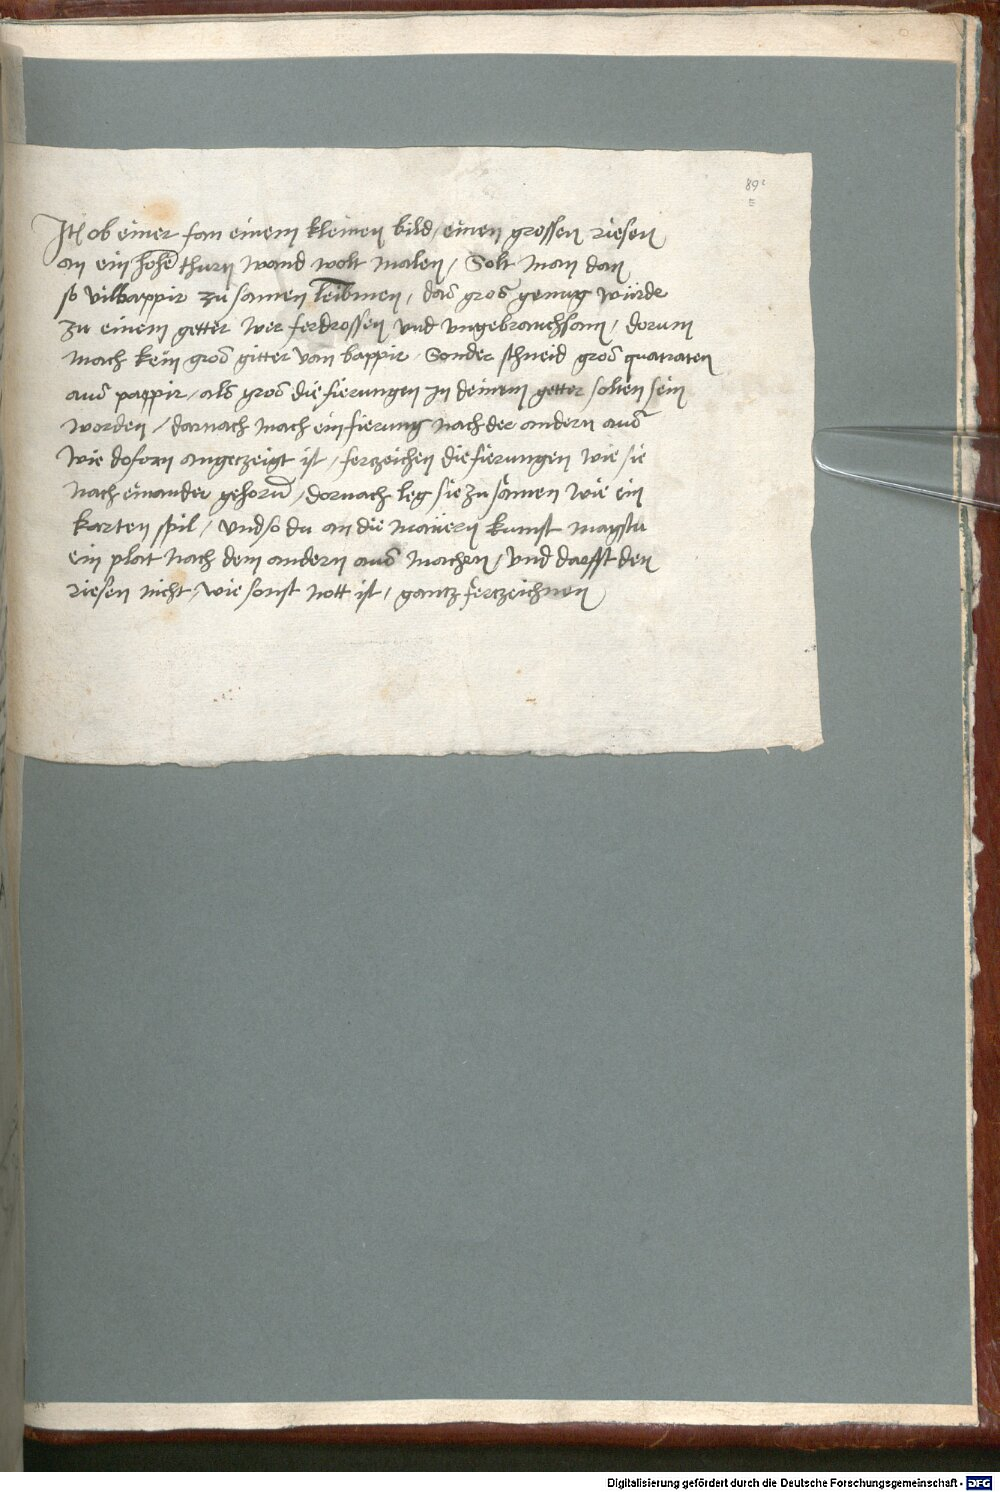 89r
E
Itē ob einer fan einem kleinen bild / einen grossen riesen
an ein hohē thurn wand wolt malen / Solt man dan
so vil bappir zu samen leibmen / das gros genug würde
zu einem getter wer ferdrossen vnd vngebrauchsam / dorum
mach kein gros gitter van bappir / Sonder schneid gros quatraten
aus pappir / als gros die fierungen in deinem getter solten sein
worden / darnach mach ein fierung nach der andern aus
wie doforn angeczeigt ist / ferczeichen die fierungen wie sie
nach einander gehorn / dornach leg sie zu samen wie ein
karten spil / vnd so du an die mauern kumst magstu
ein plat nach dem andern aus machen / vnd darffst den
riesen nicht / wie sonst nott ist / gantz ferczeichnen
Digitalisierung gefördert durch die Deutsche Forschungsgemeinschaft - DFG